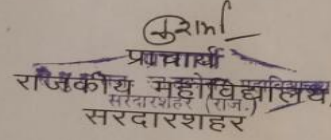 प्राचार्य
राजकीय महाविद्यालय
सरदारशहर (राज.)
सरदारशहर